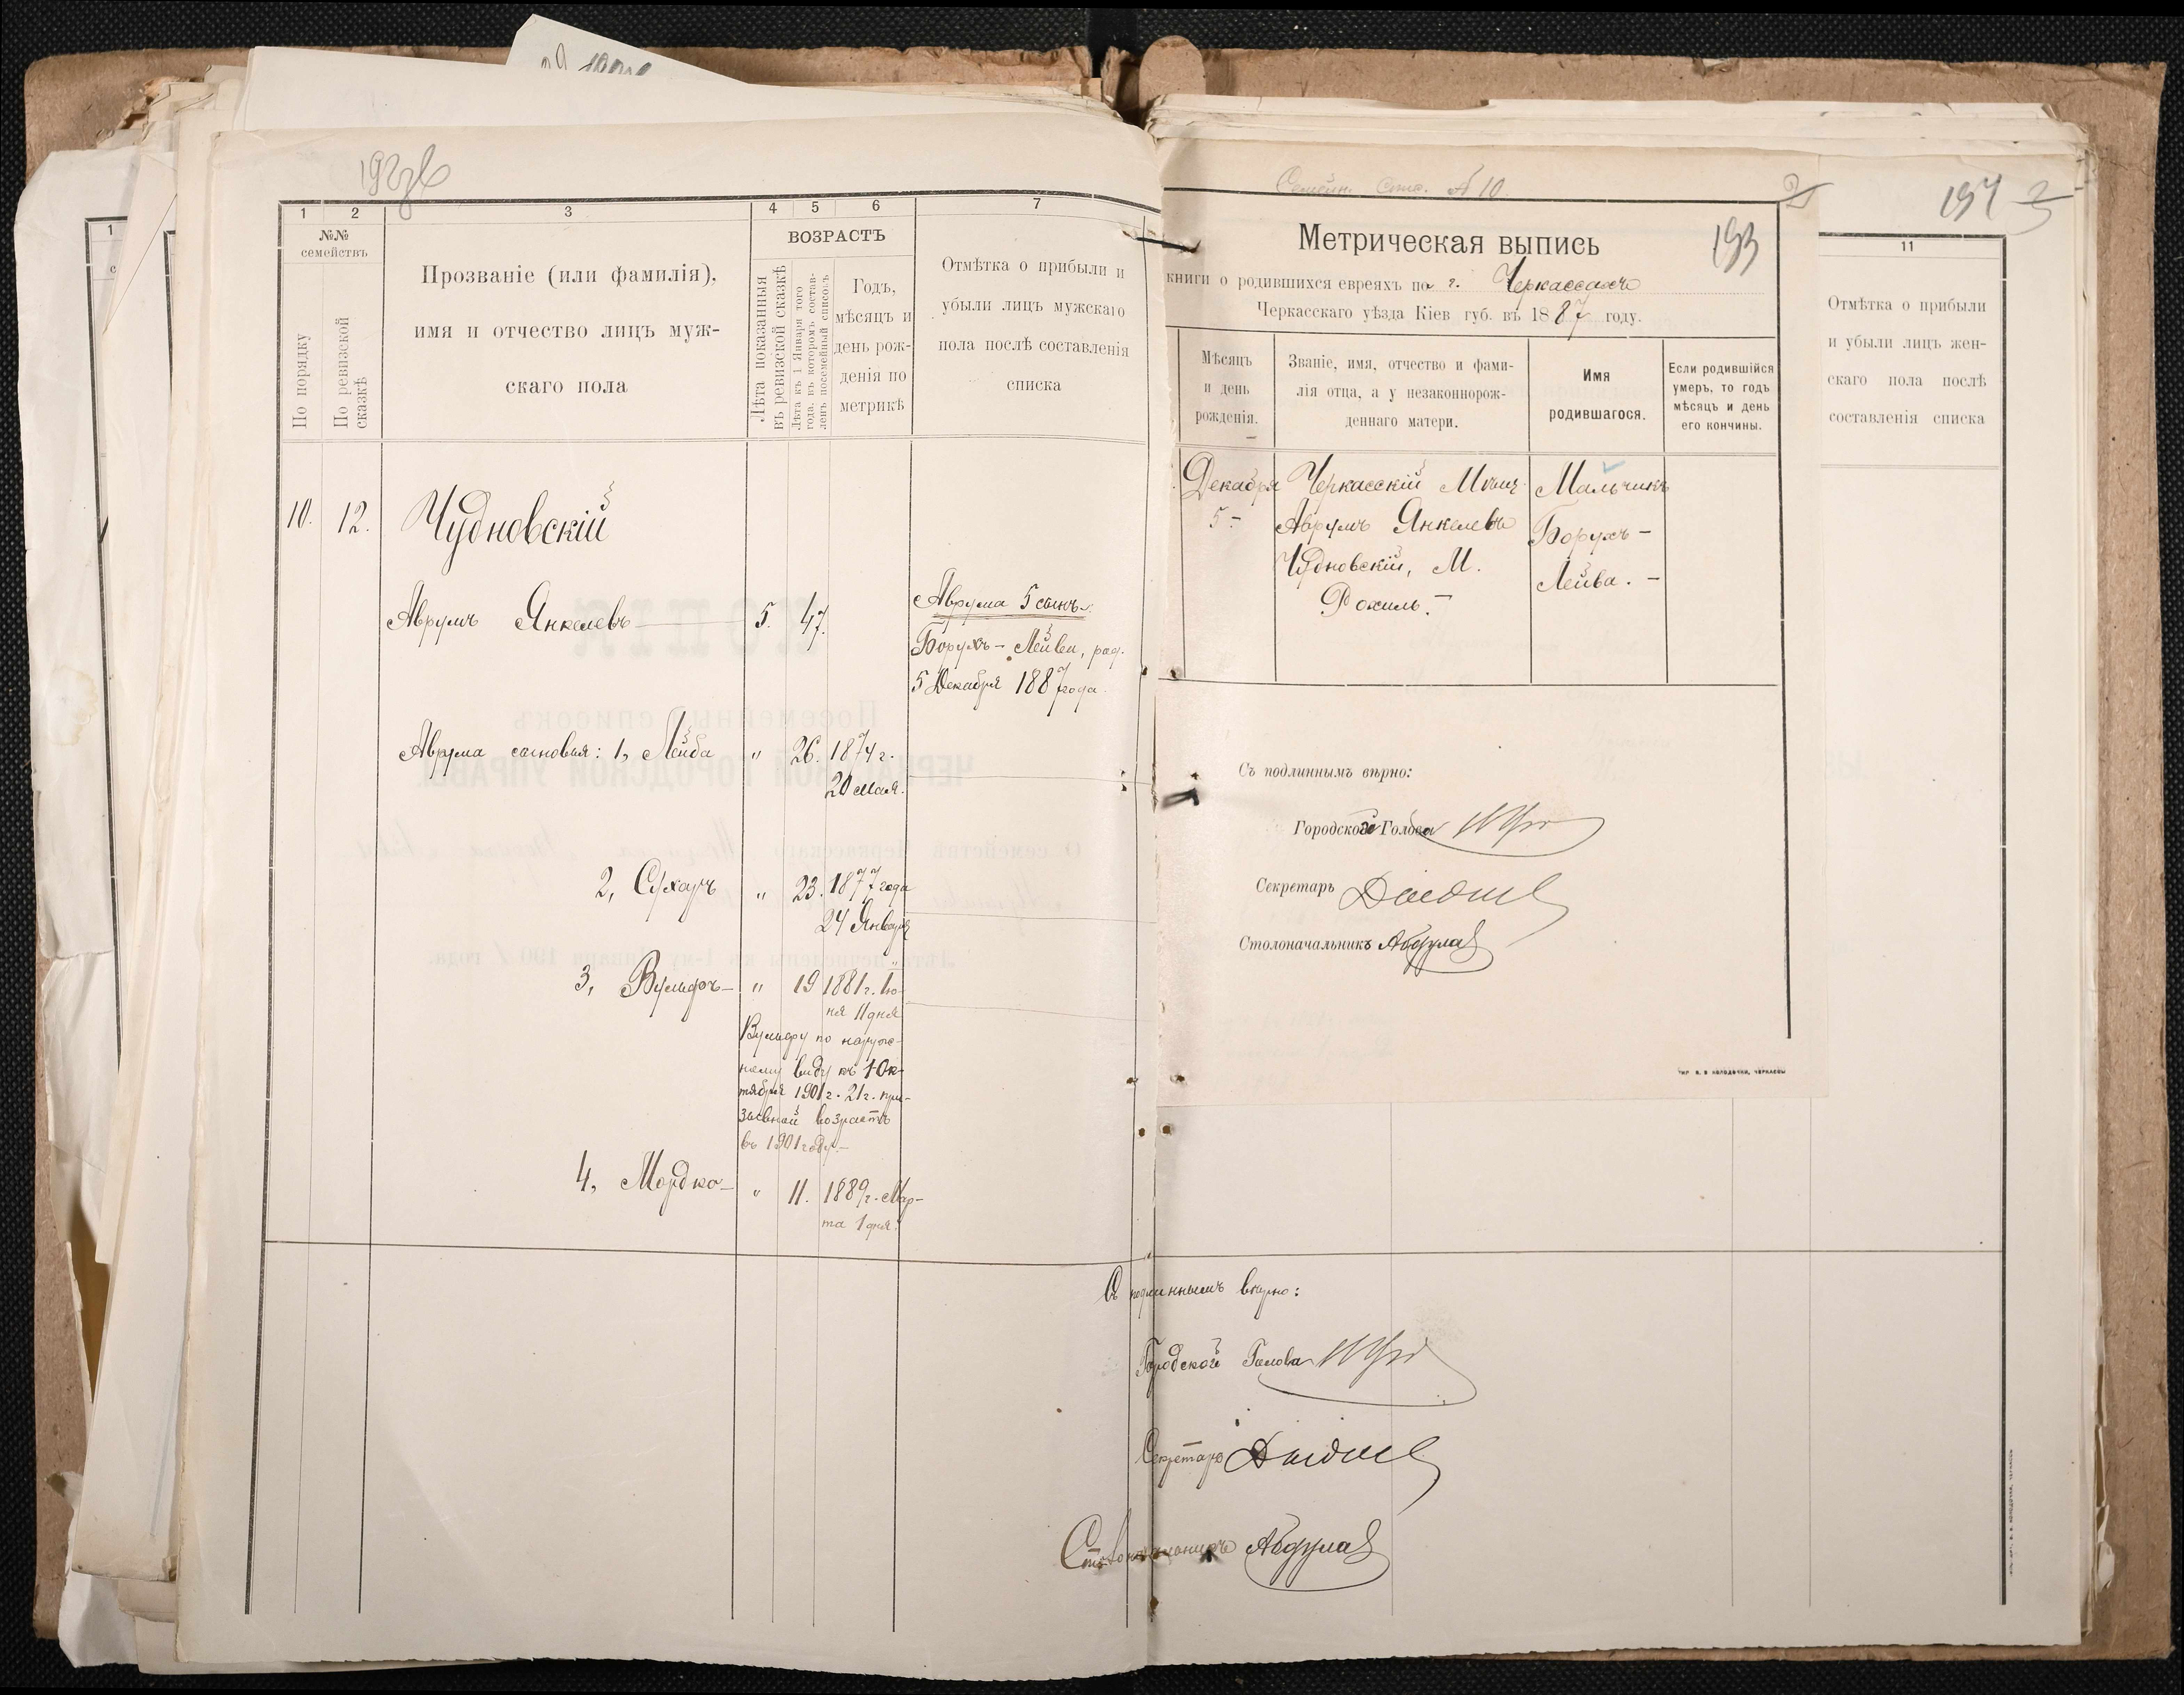 192об
1
2
3
4
5
6
7
№№
семействъ
По порядку
По ревизской
сказкѣ
Прозваніе (или фамилія),
имя и отчество лицъ муж-
скаго пола
ВОЗРАСТЪ
Лѣта показанныя
въ ревизской сказкѣ
Лѣта къ 1 Января того
года, въ которомъ состав-
ленъ посемейный списокъ
Годъ,
мѣсяцъ и
день рож-
денія по
метрикѣ
Отмѣтка о прибыли и
убыли лицъ мужскаго
пола послѣ составленія
списка
10. 12. Чудновскій
Аврумъ Янкелевъ 5. 47.
Аврума 5 сынъ:
Борухъ-Лейва, род.
5 Декабря 1887 года.
Аврума сыновья: 1, Лейба " 26. 1874 г.
20 Мая.
2, Сухаръ " 23. 1877 года
24 Января
3, Вульфъ " 19 1881 г. Ію-
ня 11 дня
Вульфу по наруж-
ному виду къ 1 Ок-
тября 1901 г. 21 г. при-
зывной возрастъ
въ 1901 году.
4, Мордко " 11. 1889 г. Мар-
та 1 дня.
Семейн. Спис. № 10.
2
193
Метрическая выпись
книги о родившихся евреяхъ по г. Черкассахъ
Черкасскаго уѣзда Кіев губ. въ 1887 году.
Мѣсяцъ
и день
рожденія.
Званіе, имя, отчество и фами-
лія отца, а у незаконнорож-
деннаго матери.
Имя
родившагося.
Если родившійся
умеръ, то годъ
мѣсяцъ и день
его кончины.
Декабря
5
Черкасскій Мѣщ.
Аврумъ Янкелевъ
Чудновскій, М.
Рохиль.
Мальчикъ
Борухъ-
Лейва.
Съ подлиннымъ вѣрно:
Городской Голова
Секретарь
Столоначальникъ
ТИП. В. В. КОЛОДОЧКИ, ЧЕРКАССЫ
194
3
11
Отмѣтка о прибыли
и убыли лицъ жен-
скаго пола послѣ
составленія списка
Съ подлиннымъ вѣрно:
Городской Голова
Секретарь
Столоначальникъ